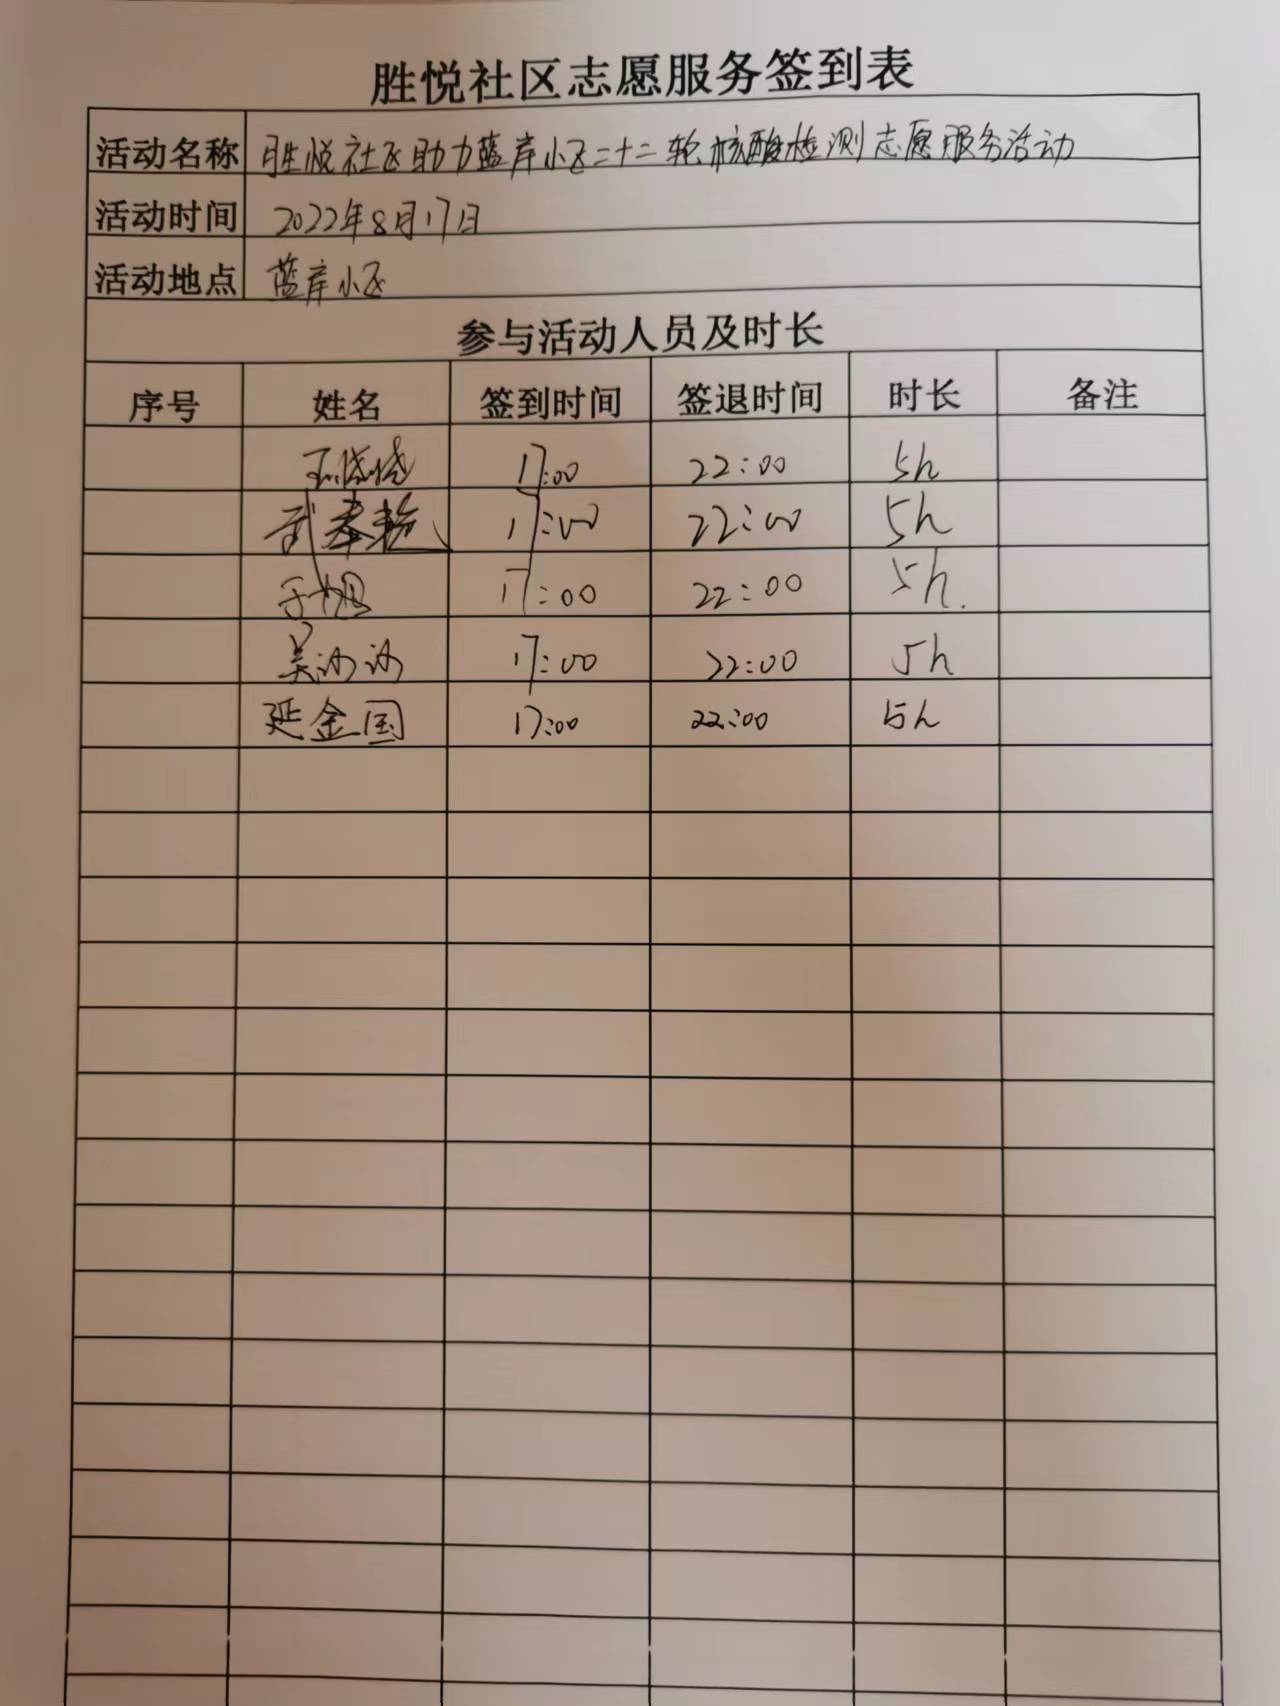 胜悦社区志愿服务签到表
活动名称 胜悦社区助力蓝岸小区二十二轮核酸检测志愿服务活动
活动时间 2022年8月17日
活动地点 蓝岸小区
参与活动人员及时长
序号 姓名 签到时间 签退时间 时长 备注
17:00 22:00 5h
武 17:00 22:00 5h
于旭 17:00 22:00 5h.
吴沙沙 17:00 22:00 5h
延金国 17:00 22:00 5h